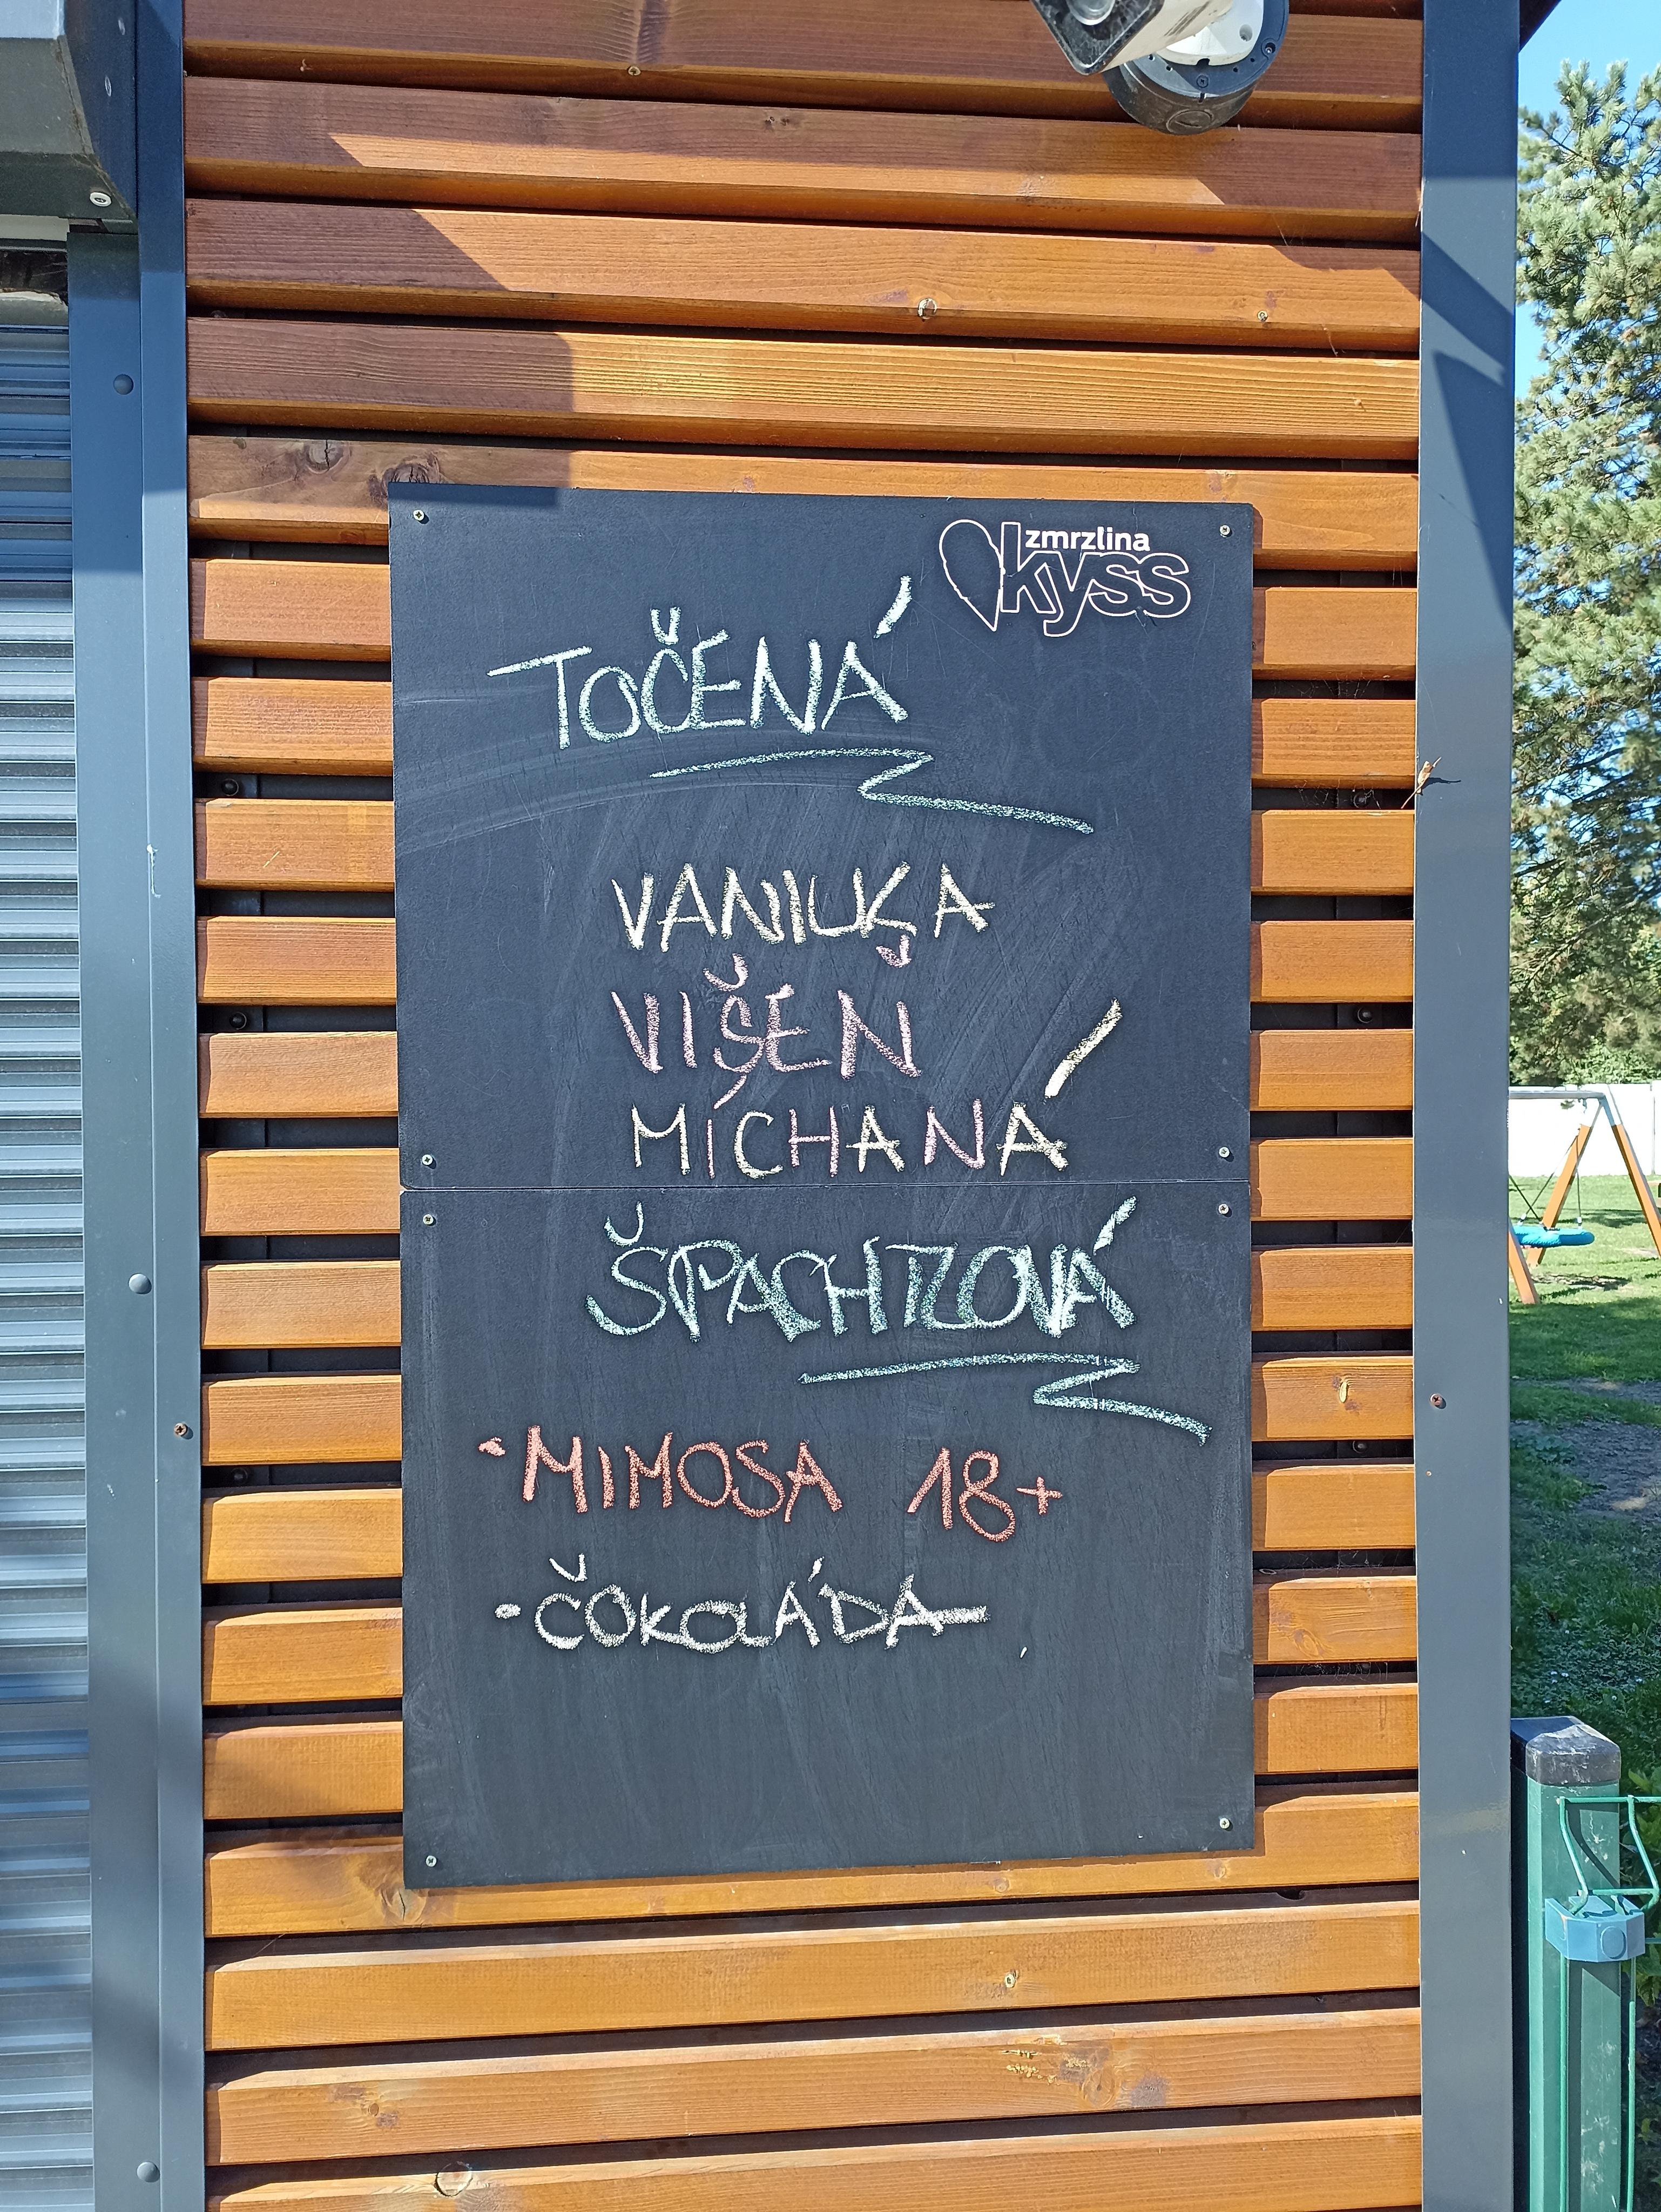 zmrzlina
kyss
TOČENÁ
VANILKA
VIŠEŇ
MÍCHANÁ
ŠPACHTLOVÁ
•MIMOSA 18+
•ČOKOLÁDA